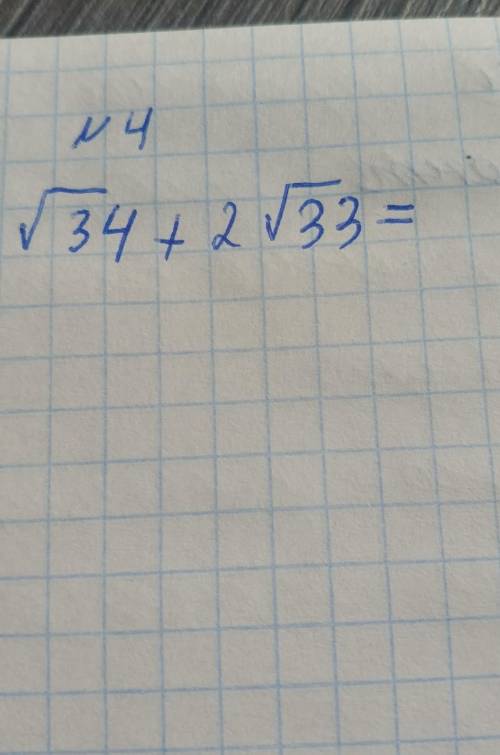 №4
√34 + 2√33 =